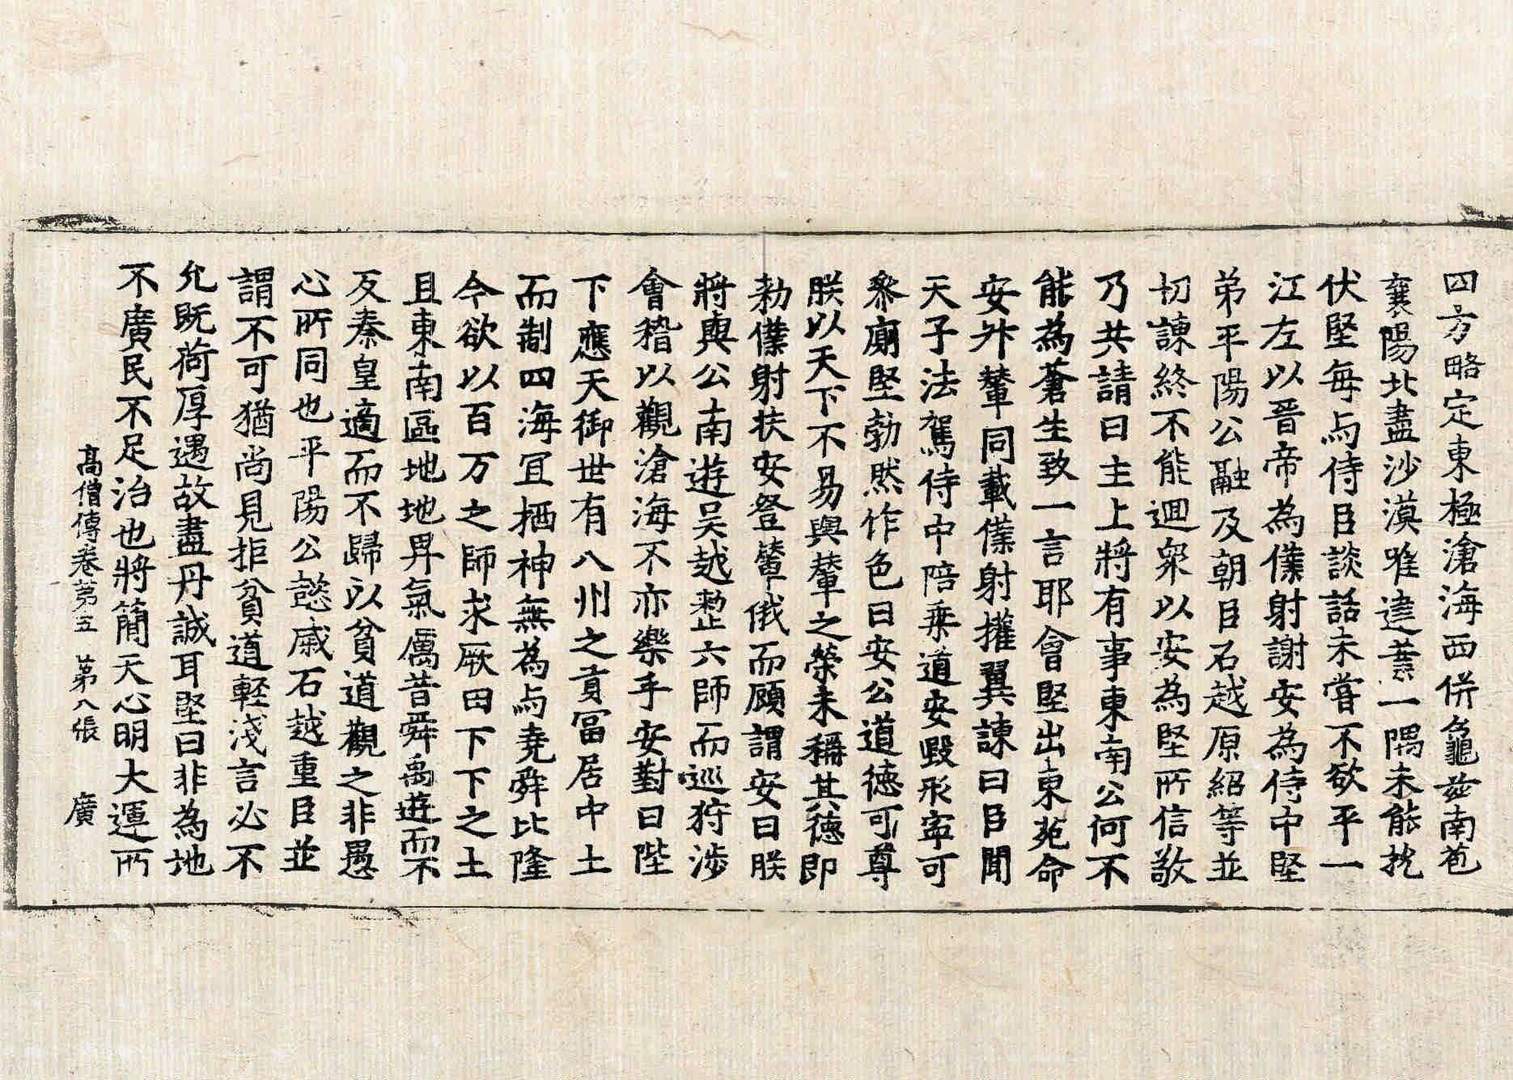 四方略定東極滄海西併龜茲南苞
襄陽北盡沙漠唯建業一隅未能抗
伏堅每与侍臣談話未嘗不欲平一
江左以晉帝為僕射謝安為侍中堅
弟平陽公融及朝臣石越原紹等並
切諫終不能迴衆以安為堅所信敬
乃共請曰主上將有事東南公何不
能為蒼生致一言耶會堅出東苑命
安升輦同載僕射權翼諫曰臣聞
天子法駕侍中陪乗道安毀形寧可
叅廟堅勃然作色曰安公道德可尊
朕以天下不易輿輦之榮未稱其德即
勑僕射扶安登輦俄而顧謂安曰朕
將與公南遊吳越整六師而巡狩涉
會稽以觀滄海不亦樂乎安對曰陛
下應天御世有八州之貢富居中土
而制四海冝栖神無為与堯舜比隆
今欲以百万之師求厥田下下之土
且東南區地地昇氣厲昔舜禹遊而不
反秦皇適而不歸以貧道觀之非愚
心所同也平陽公懿戚石越重臣並
謂不可猶尚見拒貧道輕淺言必不
允既荷厚遇故盡丹誠耳堅曰非為地
不廣民不足治也將簡天心明大運所
高僧傳卷第五 第八張 廣